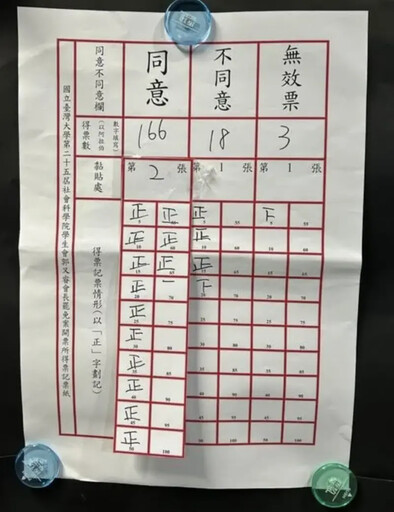 國立臺灣大學第二十五屆社會科學院學生會郭又容會長罷免案開票所得票記票紙
同意不同意欄 同意 不同意 無效票
得票數(以阿拉伯數字填寫) 166 18 3
黏貼處 第2張 第1張 第1張
得票記票情形(以「正」字劃記)
正 正 正 下
正 正 正
正 正 正
正 一 下
正
正
正
正
正
正